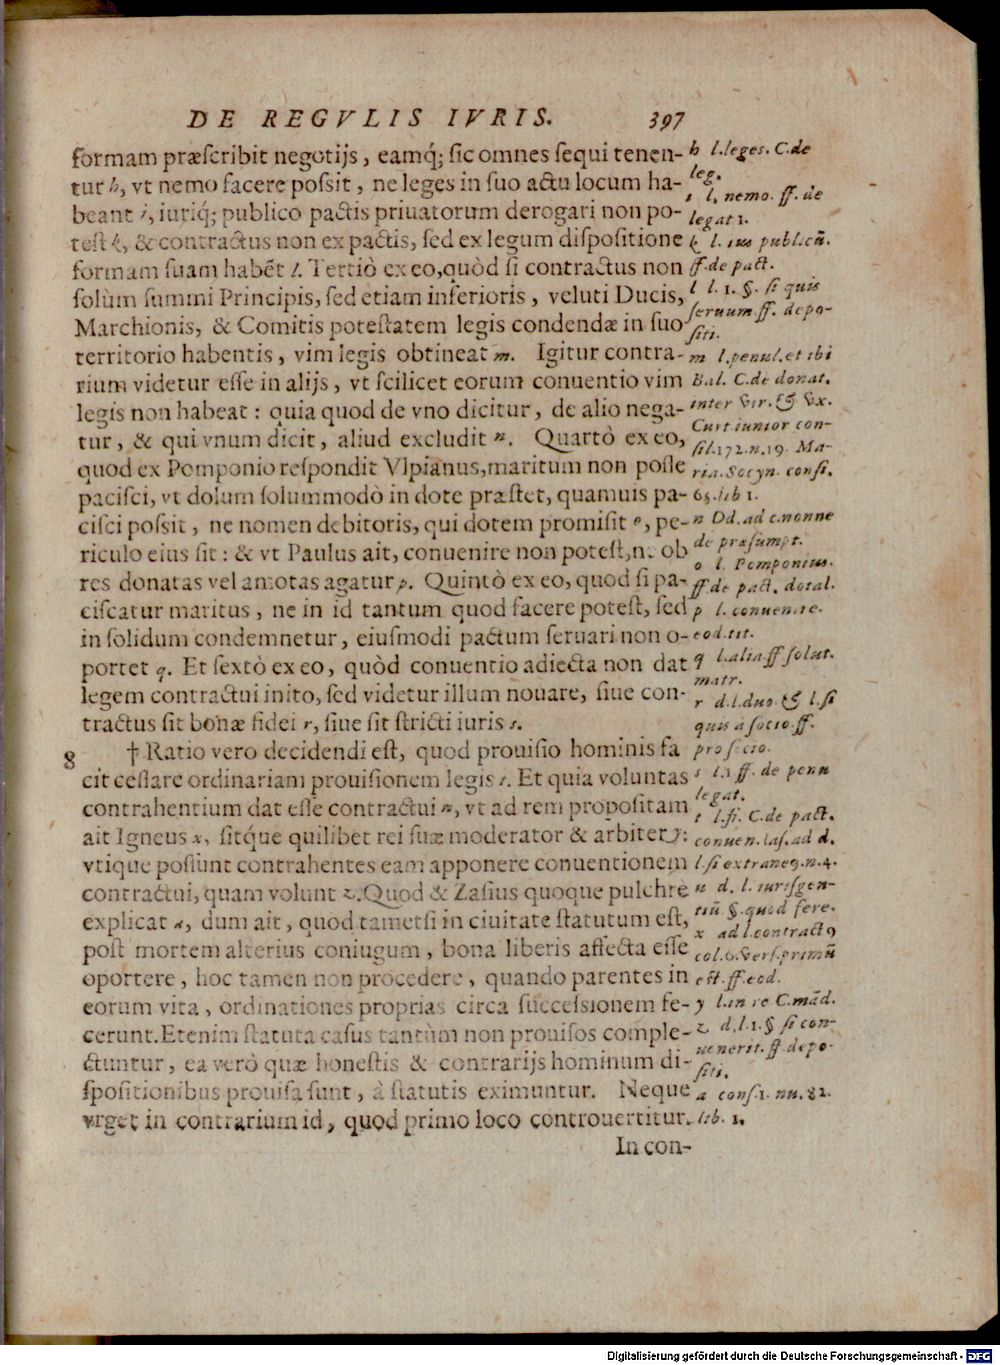 DE REGVLIS IVRIS. 397
formam præſcribit negotijs, eamq́; ſic omnes ſequi tenen-
tur h, vt nemo facere poſsit, ne leges in ſuo actu locum ha-
beant i, iuriq́; publico pactis priuatorum derogari non po-
teſt k, & contractus non ex pactis, ſed ex legum diſpoſitione
formam ſuam habẽt l. Tertiò ex eo, quòd ſi contractus non
ſolùm ſummi Principis, ſed etiam inferioris, veluti Ducis,
Marchionis, & Comitis poteſtatem legis condendæ in ſuo
territorio habentis, vim legis obtineat m. Igitur contra-
rium videtur eſſe in alijs, vt ſcilicet eorum conuentio vim
legis non habeat: quia quod de vno dicitur, de alio nega-
tur, & qui vnum dicit, aliud excludit n. Quartò ex eo,
quod ex Pomponio reſpondit Vlpianus, maritum non poſſe
paciſci, vt dolum ſolummodò in dote præſtet, quamuis pa-
ciſci poſsit, ne nomen debitoris, qui dotem promiſit o, pe-
riculo eius ſit: & vt Paulus ait, conuenire non poteſt, ne ob
res donatas vel amotas agatur p. Quintò ex eo, quod ſi pa-
ciſcatur maritus, ne in id tantum quod facere poteſt, ſed
in ſolidum condemnetur, eiuſmodi pactum ſeruari non o-
portet q. Et ſextò ex eo, quòd conuentio adiecta non dat
legem contractui inito, ſed videtur illum nouare, ſiue con-
tractus ſit bonæ fidei r, ſiue ſit ſtricti iuris s.
8 † Ratio vero decidendi eſt, quod prouiſio hominis fa
cit ceſſare ordinariam prouiſionem legis t. Et quia voluntas
contrahentium dat eſſe contractui u, vt ad rem propoſitam
ait Igneus x, ſitq́ue quilibet rei ſuæ moderator & arbiter y:
vtique poſſunt contrahentes eam apponere conuentionem
contractui, quam volunt z. Quod & Zaſius quoque pulchrè
explicat a, dum ait, quod tametſi in ciuitate ſtatutum eſt,
poſt mortem alterius coniugum, bona liberis affecta eſſe
oportere, hoc tamen non procedere, quando parentes in
eorum vita, ordinationes proprias circa ſucceſsionem fe-
cerunt. Etenim ſtatuta caſus tantùm non prouiſos comple-
ctuntur, ea verò quæ honeſtis & contrarijs hominum di-
ſpoſitionibus prouiſa ſunt, à ſtatutis eximuntur. Neque
vrget in contrarium id, quod primo loco controuertitur.
In con-
h l. leges. C. de
leg.
i l. nemo. ff. de
legat 1.
k l. ius publicũ.
ff. de pact.
l l. 1. §. ſi quis
ſeruum. ff. depo-
ſiti.
m l. penul. et ibi
Bal. C. de donat.
inter vir. & vx.
Curt iunior con-
ſil. 172. n. 19. Ma-
ria. Socyn. conſi.
65. lib 1.
n Dd. ad c. nonne
de præſumpt.
o l. Pomponius.
ff. de pact. dotal.
p l. conuenire.
eod. tit.
q l. alia ff ſolut.
matr.
r d. l. duo & l. ſi
quis à ſocio. ff.
pro ſocio.
s l. 1 ff. de penu
legat.
t l. fi. C. de pact.
conuen. Iaſ. ad d.
l. ſi extraneꝰ. n. 4.
u d. l. iuriſgen-
tiũ. §. quod fere.
x ad l. contractꝰ
col. 6. verſ. primũ
eſt. ff. eod.
y l. in re C. mãd.
z d. l. 1. § ſi con-
uenerit. ff. depo-
ſiti.
a conſ. 1. nu. 81.
lib. 1.
Digitalisierung gefördert durch die Deutsche Forschungsgemeinschaft - DFG